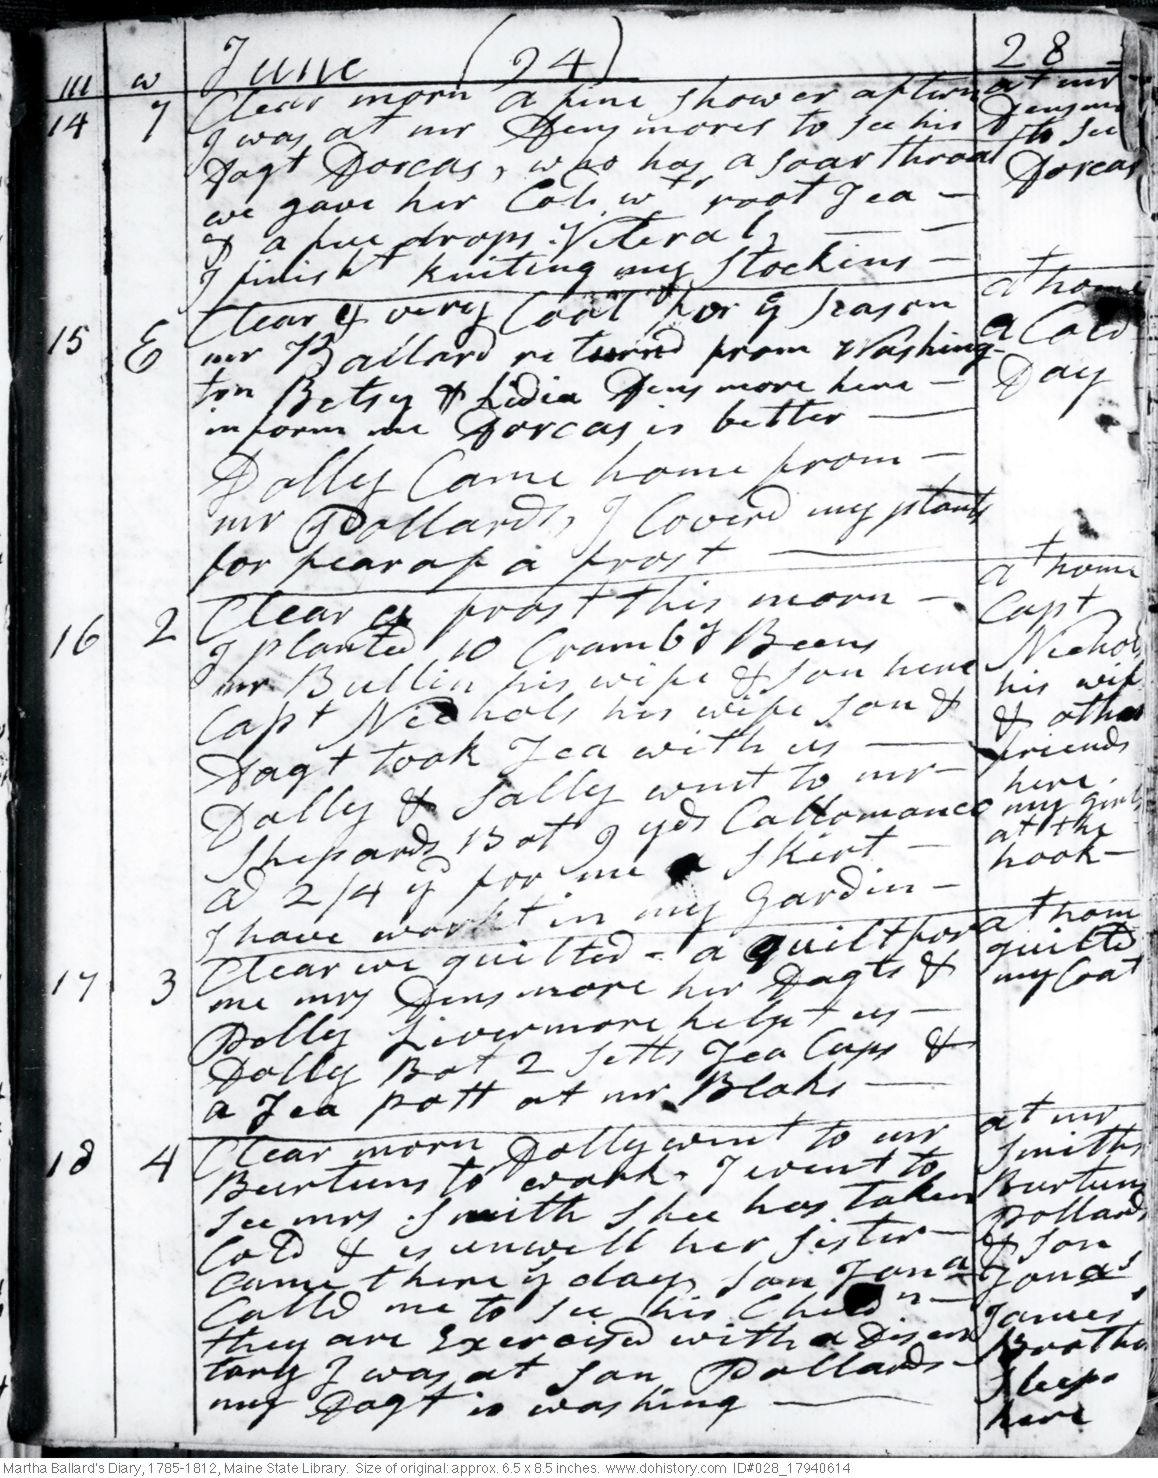 June (24) 28
m w
14 7 Clear morn a fine shower aftern at mr
I was at mr Densmores to see his Densmr
Dagt Dorcas, who has a soar throat to see
we gave her Colt wtr root Tea – Dorcas
& a few drops Viteral,
I finisht knitting my Stockins –
15 E Clear & very Coal for ye season at home
mr Ballard returnd from Washing- a Cold
ton Betsy & Lidia Densmore here – Day
inform me Dorcas is better
Dolly Came home from –
mr Pollards, I Coverd my plants
for fear of a frost
16 2 Clear a frost this morn – at home
I planted 10 Cramby Beens Capt
mr Bullin his wife & son here Nichols
Capt Nichols his wife son & his wif
Dagt took Tea with us & other
Dolly & Sally went to mr – friends
Shepards Bot 9 yds Callomanco here.
@ 2/4 pr for me a skirt – my girls
I have workt in my Gardin – at the
hook –
17 3 Clear we quilted – a quilt for at home
me mrs Densmore her Dagts & quilted
Polly Livermore helpt us – my Coat
Dolly Bot 2 setts Tea Cups &
a Tea pott at mr Blaks
18 4 Clear morn Dolly went to mr at mr
Burtuns to work. I went to Smiths
see mrs Smith shee has taken Burtuns
Cold & is unwell her sister – Pollards
Came there ye day son Jona & son
Calld me to see his Childn – Jonas,
they are Exercised with a Disen James
tary I was at son Pollards – Brother
my Dagt is washing Sleeps
here
Martha Ballard's Diary, 1785-1812, Maine State Library. Size of original: approx. 6.5 x 8.5 inches. www.dohistory.com ID#028_17940614